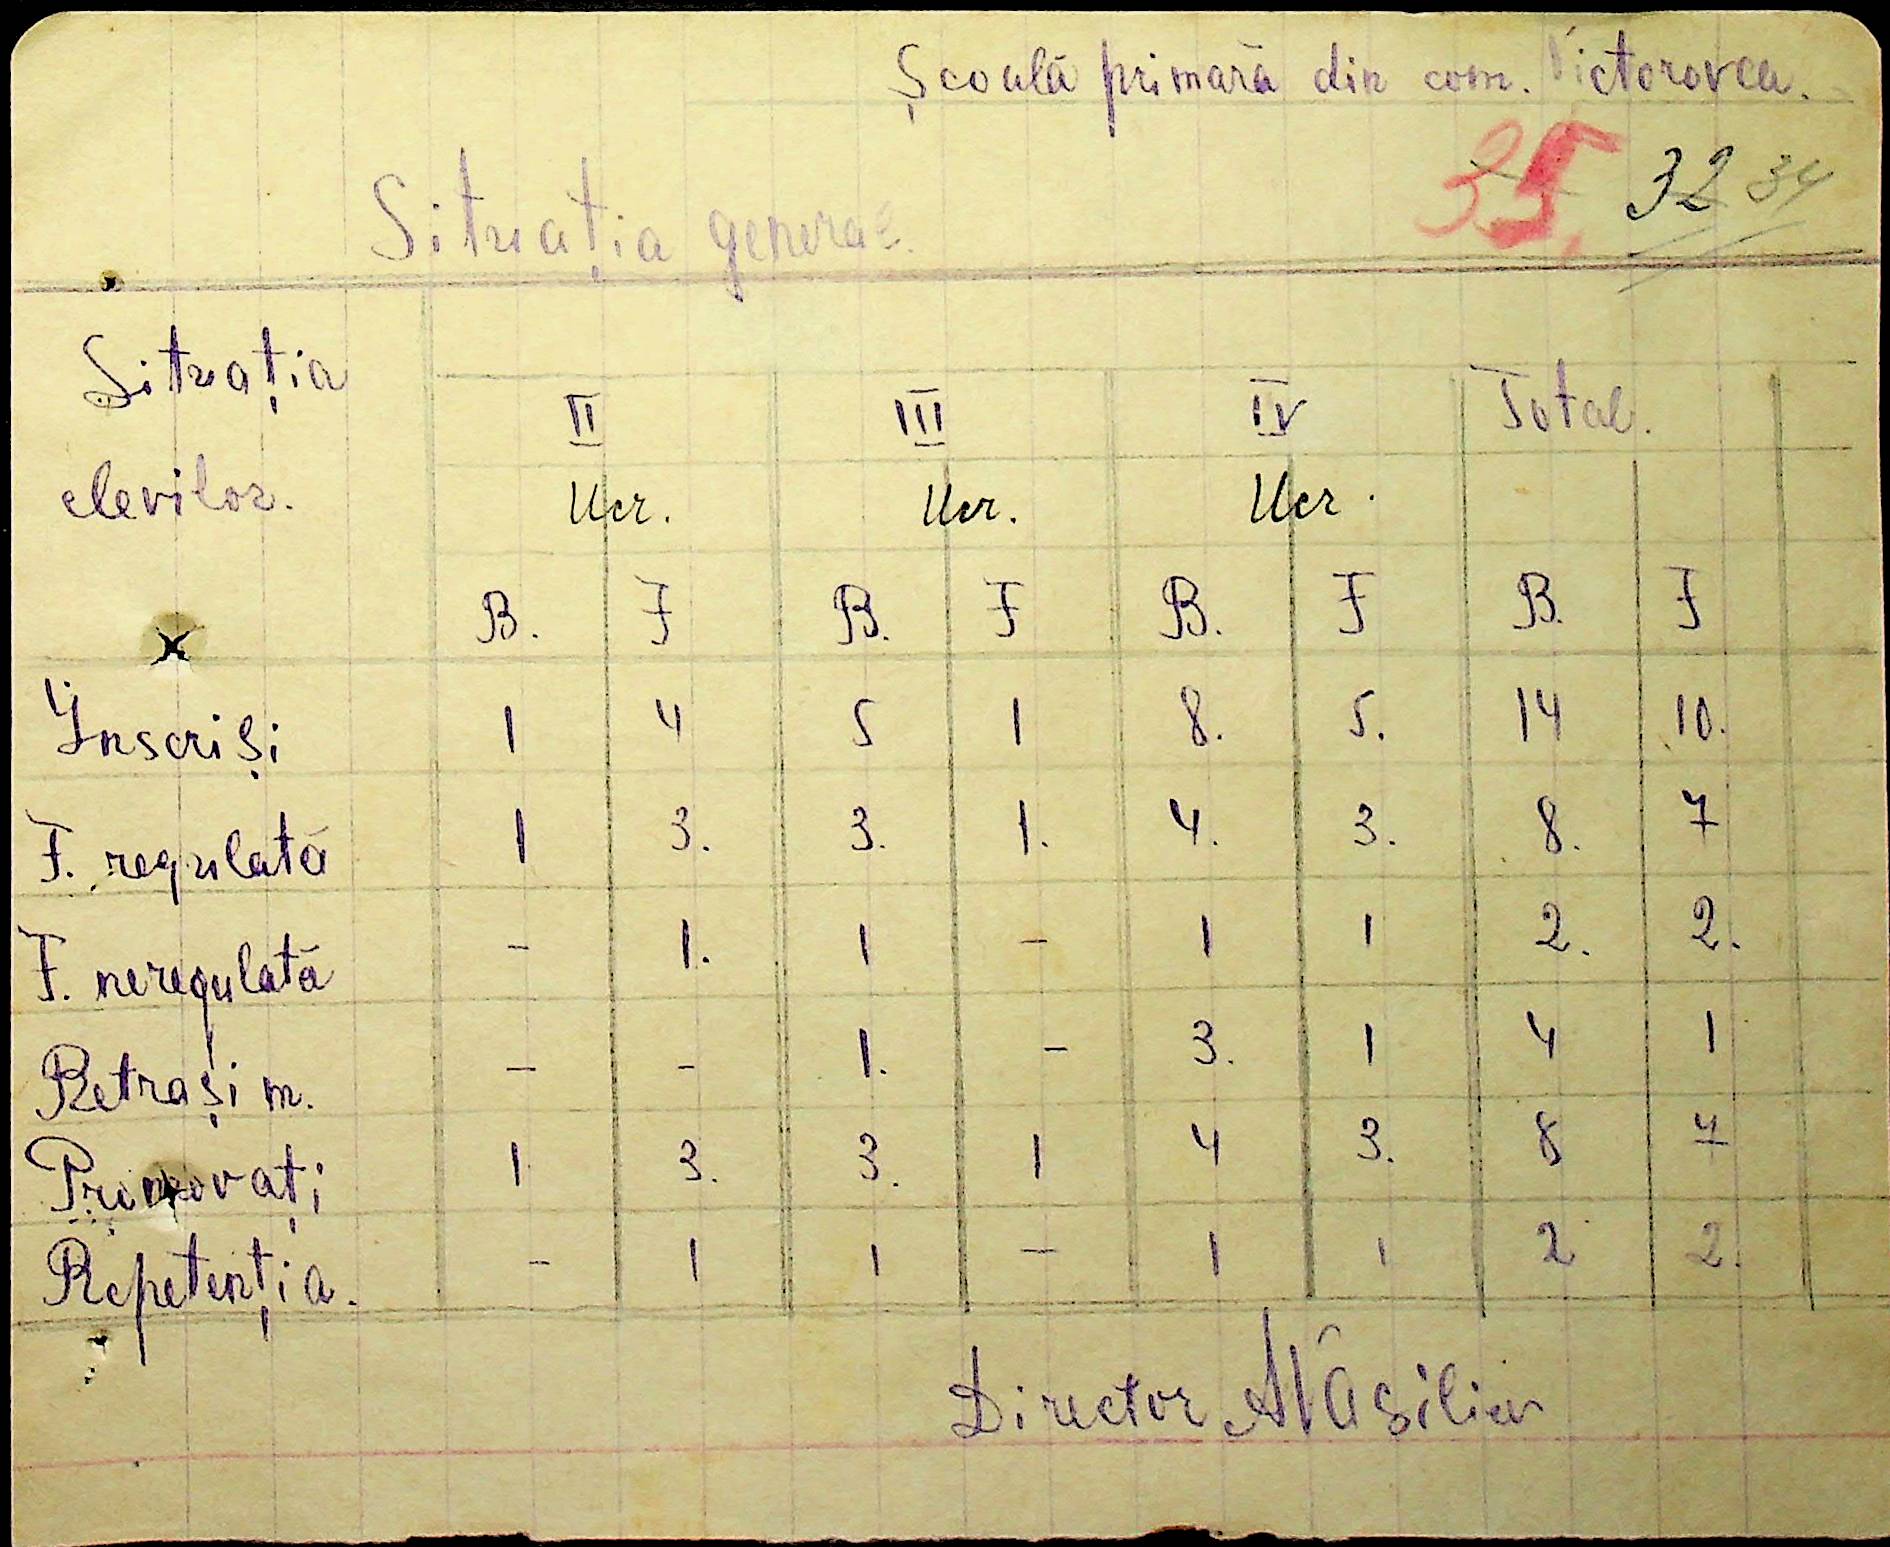 Școulă primară din com. Victorovca.
35, 32 34
Situația general.
Situația elevilor.
II III IV Total.
Ucr. Ucr. Ucr.
B. F B. F B. F B. F
Ynscriși 1 4 5 1 8. 5. 14 10.
F. regulată 1 3. 3. 1. 4. 3. 8. 7
F. neregulată - 1. 1 - 1 1 2. 2.
Retrași m. - - 1. - 3. 1 4 1
Promovați 1 3. 3. 1 4 3. 8 7
Repetenția. - 1 1 - 1 1 2 2.
Director